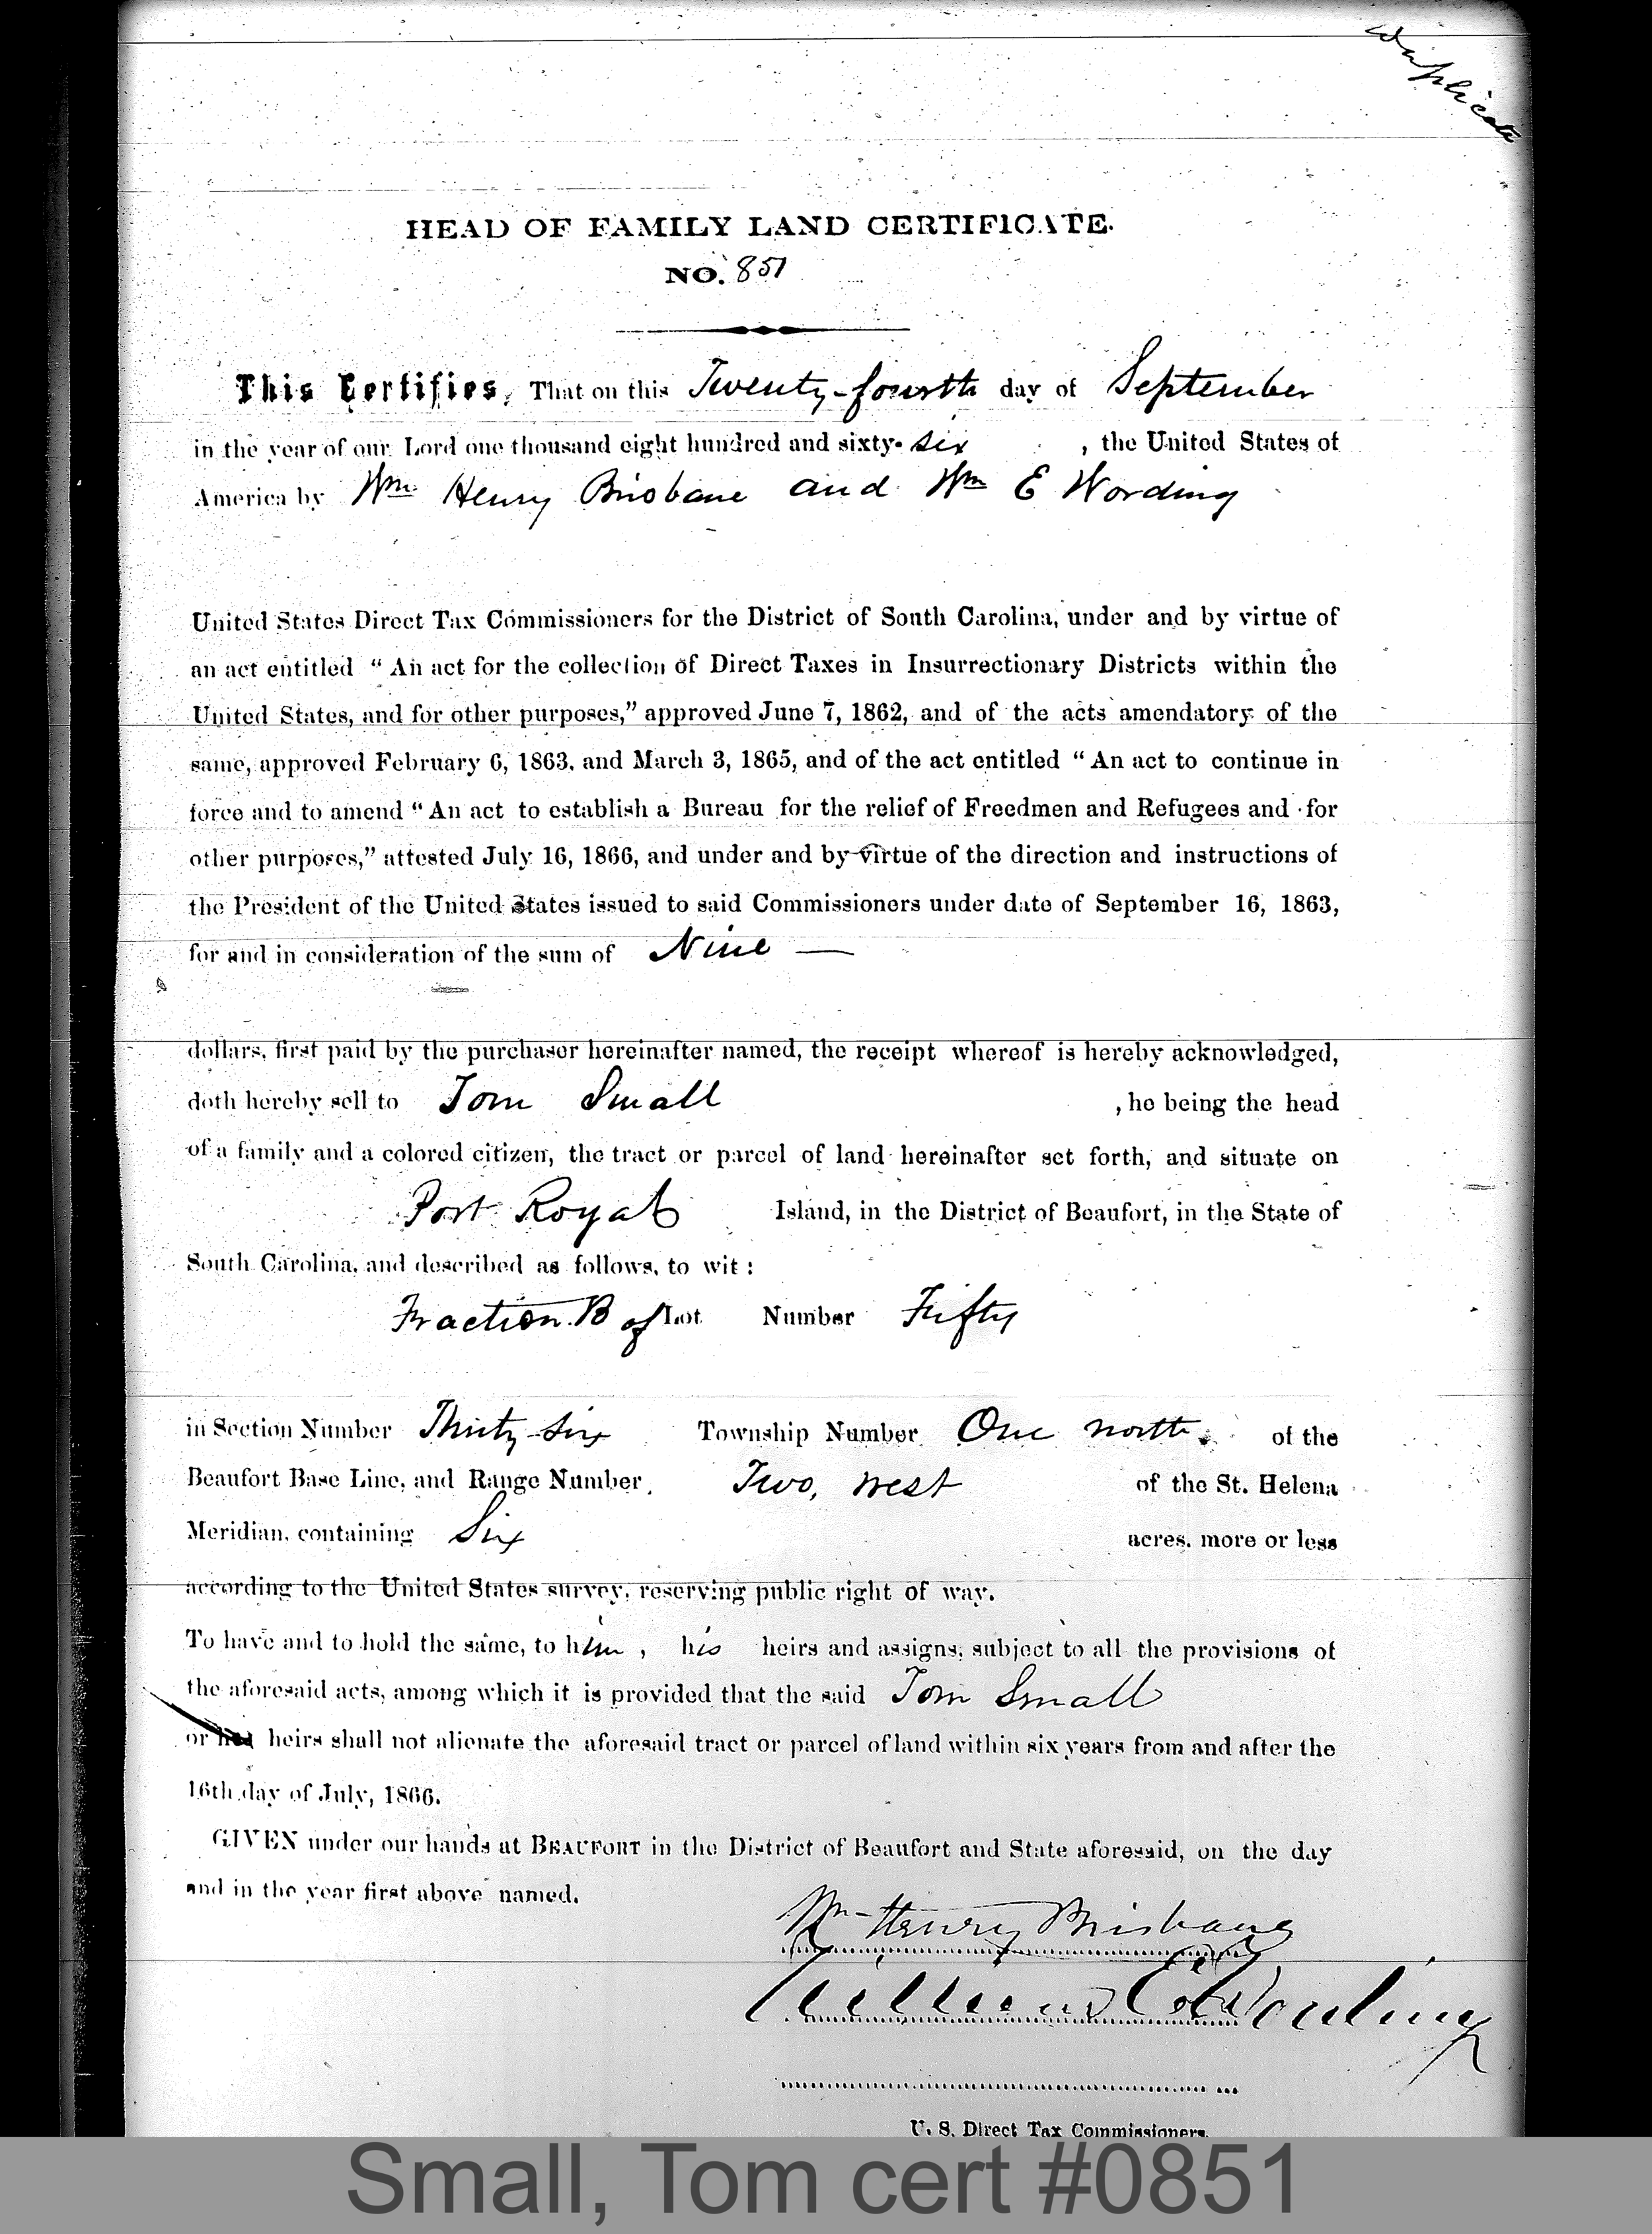 Duplicate
HEAD OF FAMILY LAND CERTIFICATE.
NO. 851
This Certifies, That on this Twenty-fourth day of September
in the year of our Lord one thousand eight hundred and sixty-six , the United States of
America by Wm Henry Brisbane and Wm E Wording
United States Direct Tax Commissioners for the District of South Carolina, under and by virtue of
an act entitled “ An act for the collection of Direct Taxes in Insurrectionary Districts within the
United States, and for other purposes,” approved June 7, 1862, and of the acts amendatory of the
same, approved February 6, 1863, and March 3, 1865, and of the act entitled “ An act to continue in
force and to amend “ An act to establish a Bureau for the relief of Freedmen and Refugees and for
other purposes,” attested July 16, 1866, and under and by virtue of the direction and instructions of
the President of the United States issued to said Commissioners under date of September 16, 1863,
for and in consideration of the sum of Nine —
dollars, first paid by the purchaser hereinafter named, the receipt whereof is hereby acknowledged,
doth hereby sell to Tom Small , he being the head
of a family and a colored citizen, the tract or parcel of land hereinafter set forth, and situate on
Port Royal Island, in the District of Beaufort, in the State of
South Carolina, and described as follows, to wit :
Fraction B of Lot Number Fifty
in Section Number Thirty-six Township Number One north. of the
Beaufort Base Line, and Range Number Two, west of the St. Helena
Meridian, containing Six acres, more or less
according to the United States survey, reserving public right of way.
To have and to hold the same, to him , his heirs and assigns, subject to all the provisions of
the aforesaid acts, among which it is provided that the said Tom Small
or his heirs shall not alienate the aforesaid tract or parcel of land within six years from and after the
16th day of July, 1866.
GIVEN under our hands at BEAUFORT in the District of Beaufort and State aforesaid, on the day
and in the year first above named.
Wm Henry Brisbane
William E Wording
U. S. Direct Tax Commissioners.
Small, Tom cert #0851